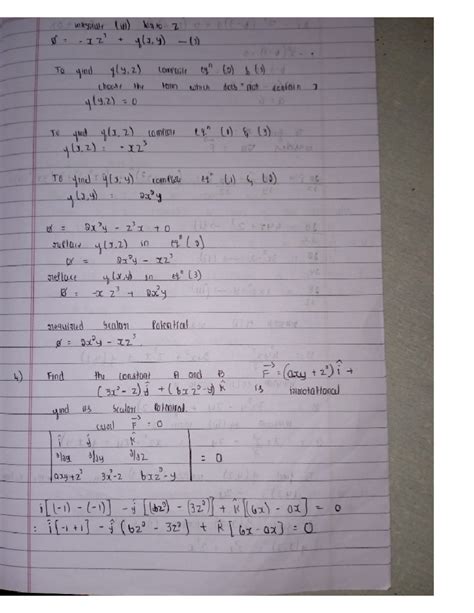 Integrate (iii) w.r.t z
ø = -xz³ + y(x,y) —(3)
To find y(y,z) compare eqⁿ (2) & (3)
choose the term which does not contain x
y(y,z) = 0
To find y(x,z) compare eqⁿ (1) & (3)
y(x,z) = -xz³
To find y(x,y) compare eqⁿ (1) & (2)
y(x,y) = 2x²y
ø = 2x²y - z³x + 0
replace y(x,z) in eqⁿ (2)
ø = 2x²y - xz³
replace y(x,y) in eqⁿ (3)
ø = -xz³ + 2x²y
required Scalar Potential
ø = 2x²y - xz³.
4) Find the constant A and B F = (axy + z³) î +
(3x² - z) ĵ + (bxz² - y) k̂ is irrotational
find its Scalar Potential.
curl F = 0
î ĵ k̂
∂/∂x ∂/∂y ∂/∂z = 0
axy+z³ 3x²-z bxz²-y
î[(-1) - (-1)] - ĵ[(bz²) - (3z²)] + k̂[(6x) - ax] = 0
: î[-1+1] - ĵ(bz² - 3z²) + k̂[6x - ax] = 0